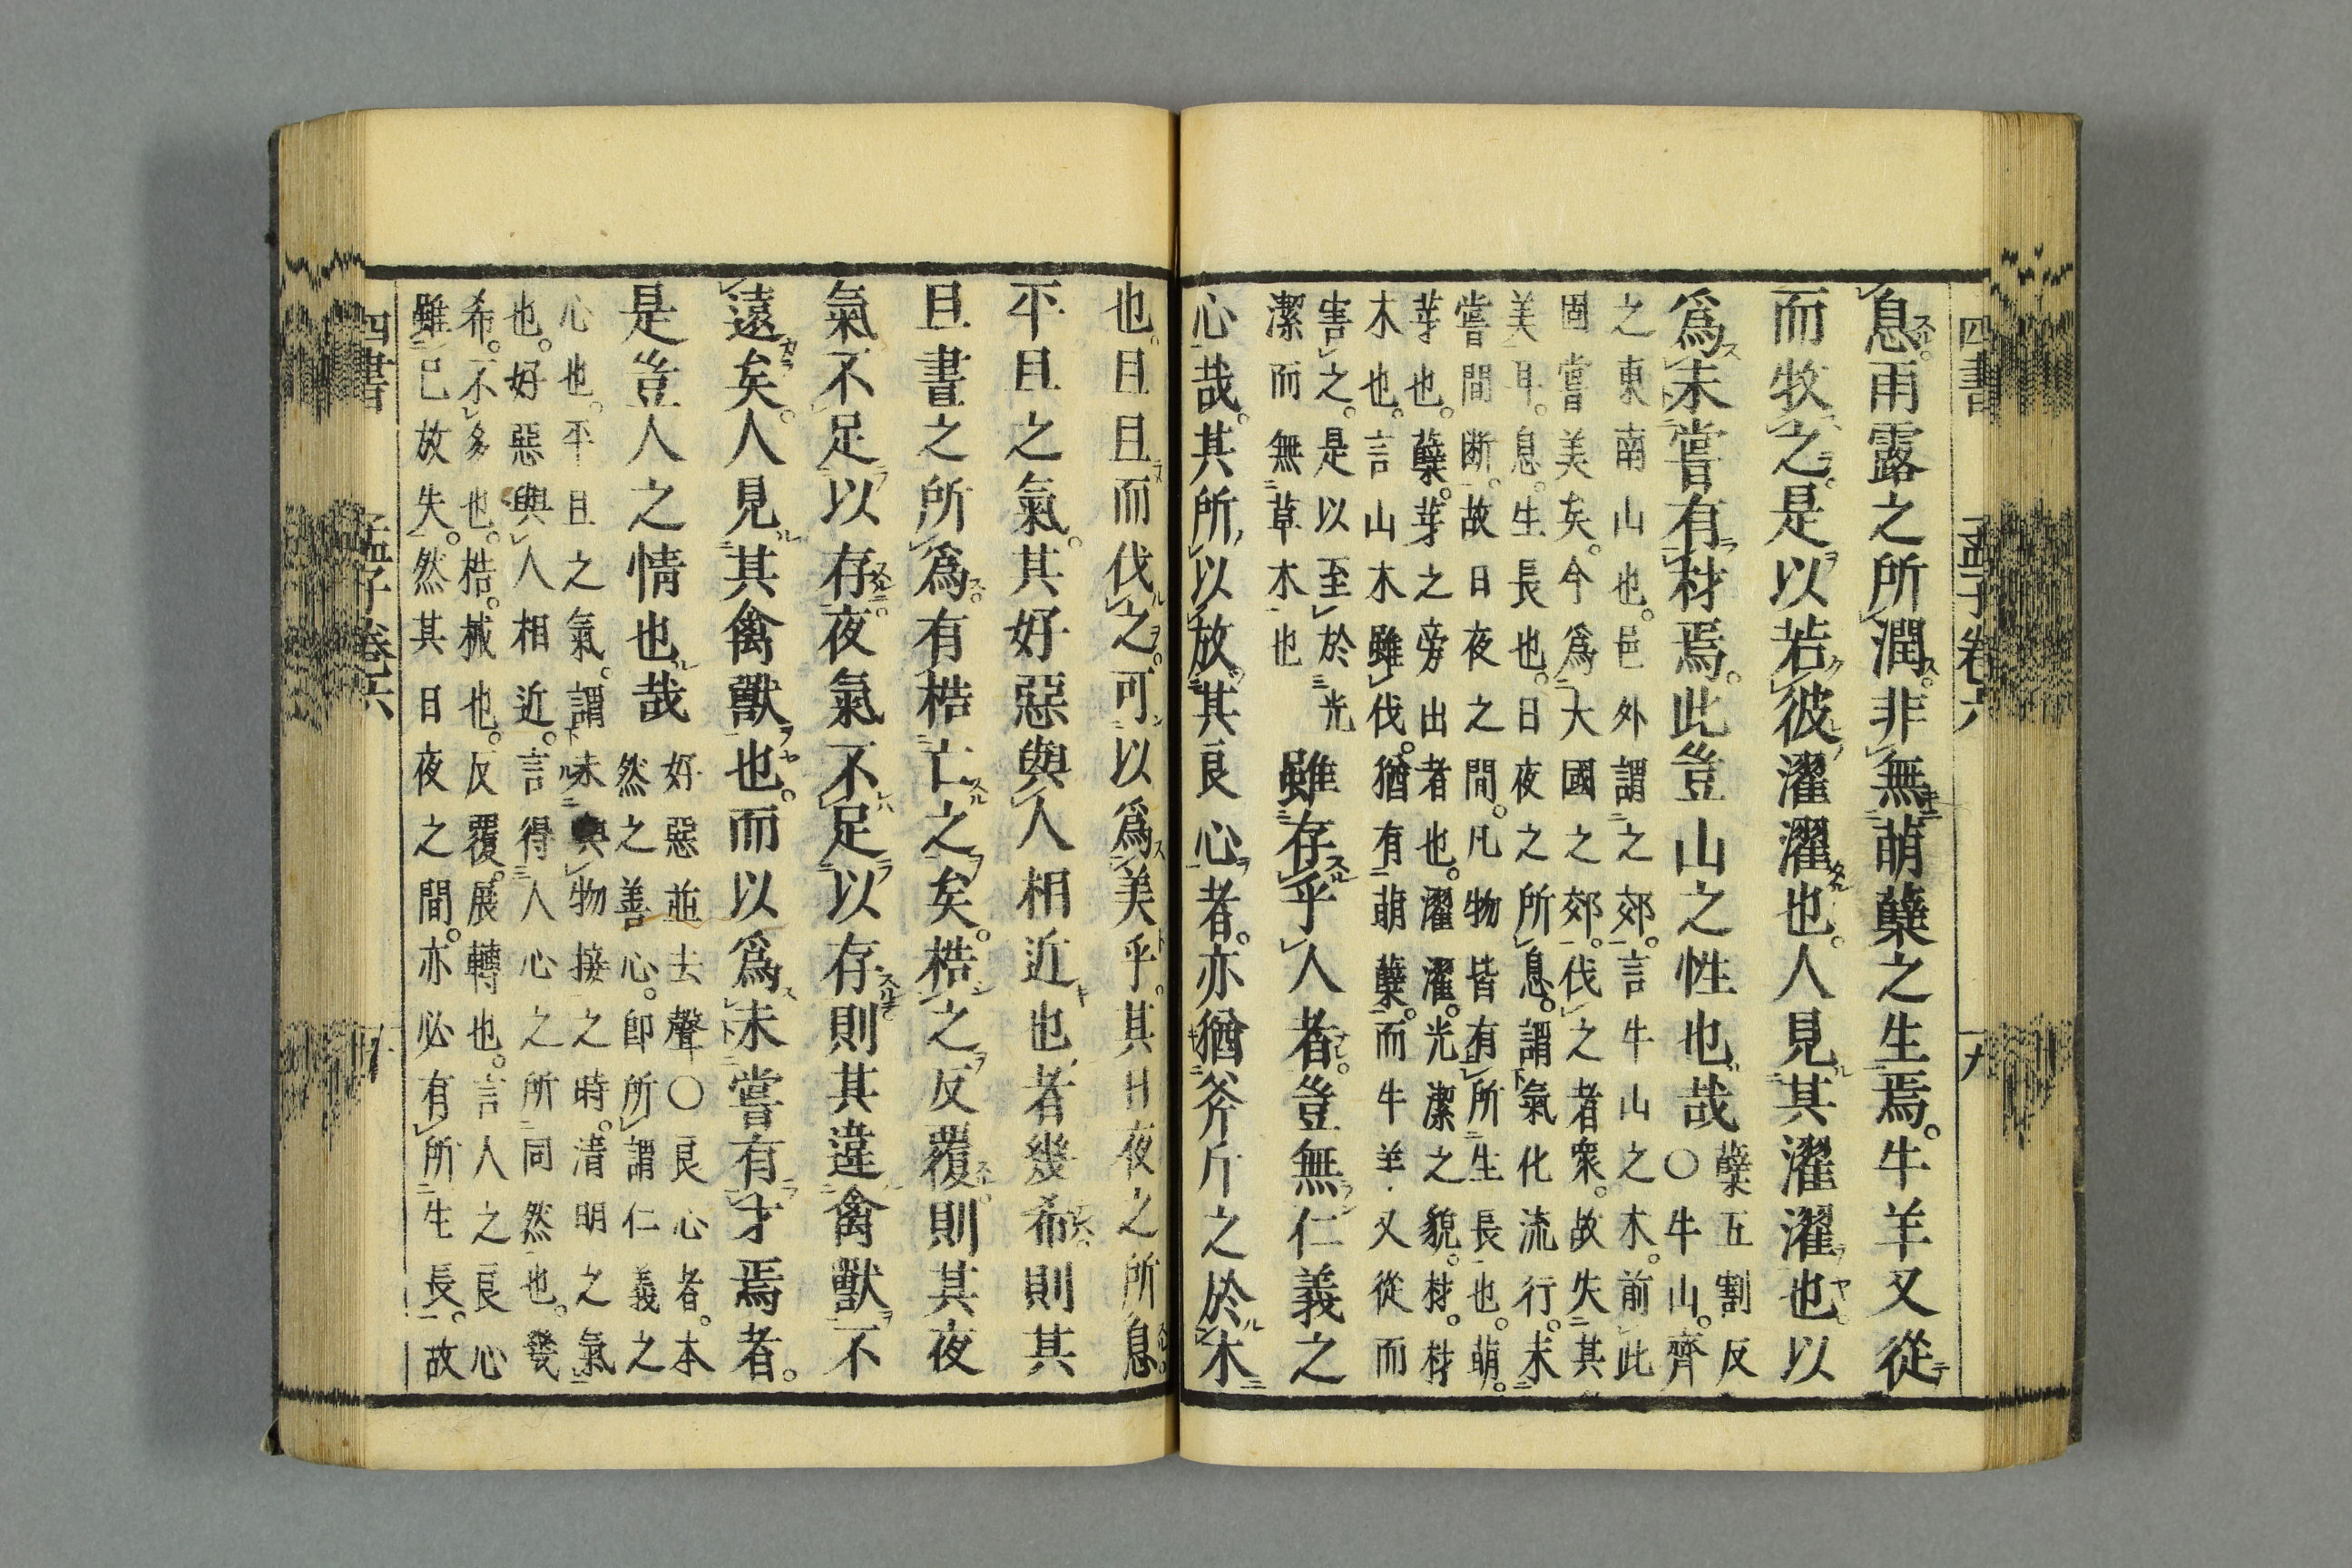 四書 孟子卷六 九
息。雨露之所潤。非無萌蘗之生焉。牛羊又從
而牧之。是以若彼濯濯也。人見其濯濯也。以
爲未嘗有材焉。此豈山之性也哉
蘗五割反
○牛山。齊
之東南山也。邑外謂之郊。言牛山之木。前此
固嘗美矣。今爲大國之郊。伐之者衆。故失其
美耳。息。生長也。日夜之所息。謂氣化流行。未
嘗間断。故日夜之間。凡物皆有所生長也。萌。
芽也。蘗。芽之旁出者也。濯濯。光潔之貌。材。材
木也。言山木雖伐。猶有萌蘗。而牛羊又從而
害之。是以至於光
潔而無草木也
雖存乎人者。豈無仁義之
心哉。其所以放其良心者。亦猶斧斤之於木
也。旦旦而伐之。可以爲美乎。其日夜之所息
平旦之氣。其好惡與人相近也者幾希則其
旦晝之所爲。有梏亡之矣。梏之反覆。則其夜
氣不足以存。夜氣不足以存則其違禽獸不
遠矣。人見其禽獸也。而以爲未嘗有才焉者。
是豈人之情也哉
好惡並去聲○良心者。本
然之善心。卽所謂仁義之
心也。平旦之氣。謂未與物接之時。清明之氣
也。好惡與人相近。言得人心之所同然也。幾
希。不多也。梏。械也。反覆。展轉也。言人之良心
雖已放失。然其日夜之間。亦必有所生長。故
四書 孟子卷六